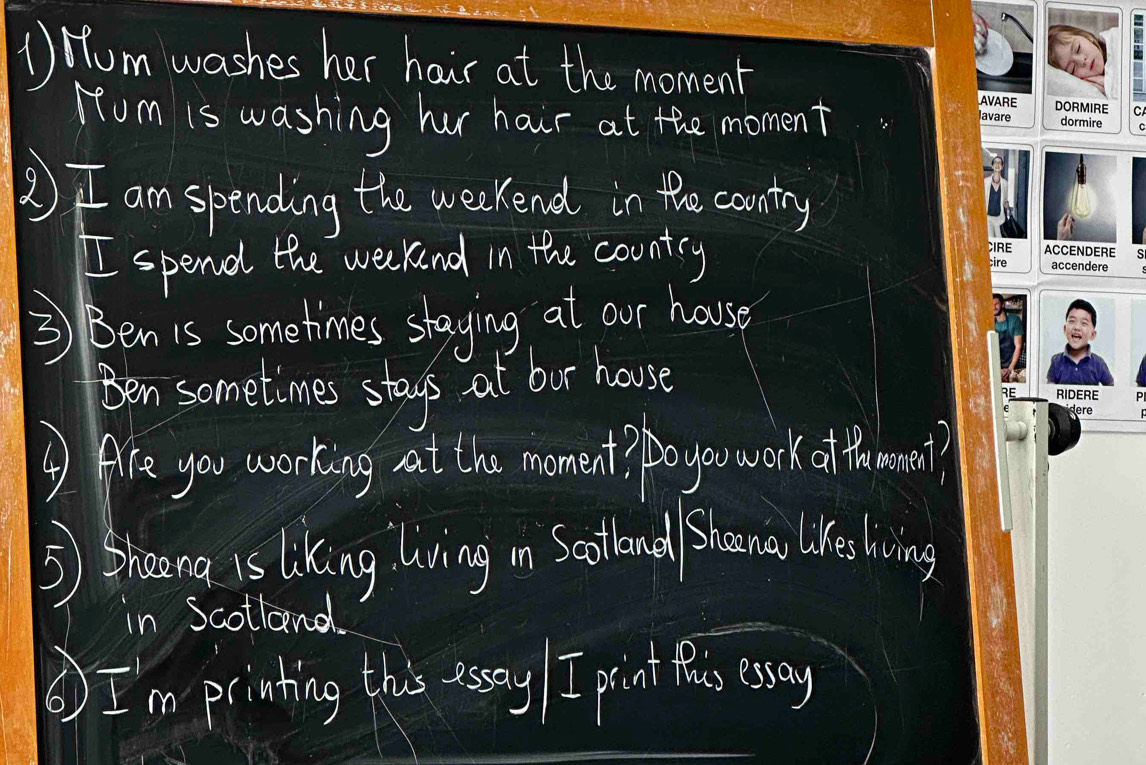 1) Mum washes her hair at the moment
Mum is washing her hair at the moment
2) I am spending the weekend in the country
I spend the weekend in the country
3) Ben is sometimes staying at our house
Ben sometimes stays at our house
4) Are you working at the moment? / Do you work at the moment?
5) Sheena is liking living in Scotland / Sheena likes living
in Scotland.
6) I'm printing this essay / I print this essay
AVARE
lavare
DORMIRE
dormire
CIRE
cire
ACCENDERE
accendere
RE
RIDERE
idere